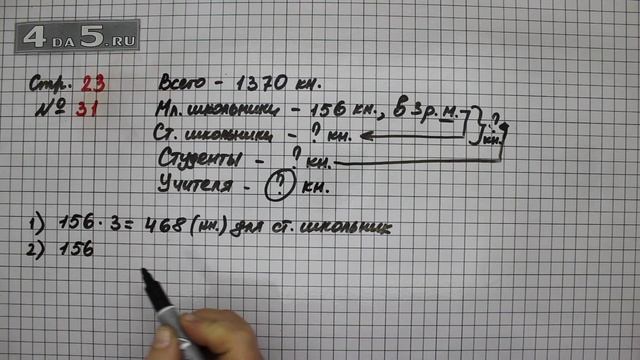 4DA5.RU
Стр. 23
№ 31
Всего - 1370 кн.
Мл. школьники - 156 кн., в 3 р. м. ?
Ст. школьники - ? кн. кн.
Студенты - ? кн.
Учителя - ? кн.
1) 156 · 3 = 468 (кн.) для ст. школьник
2) 156